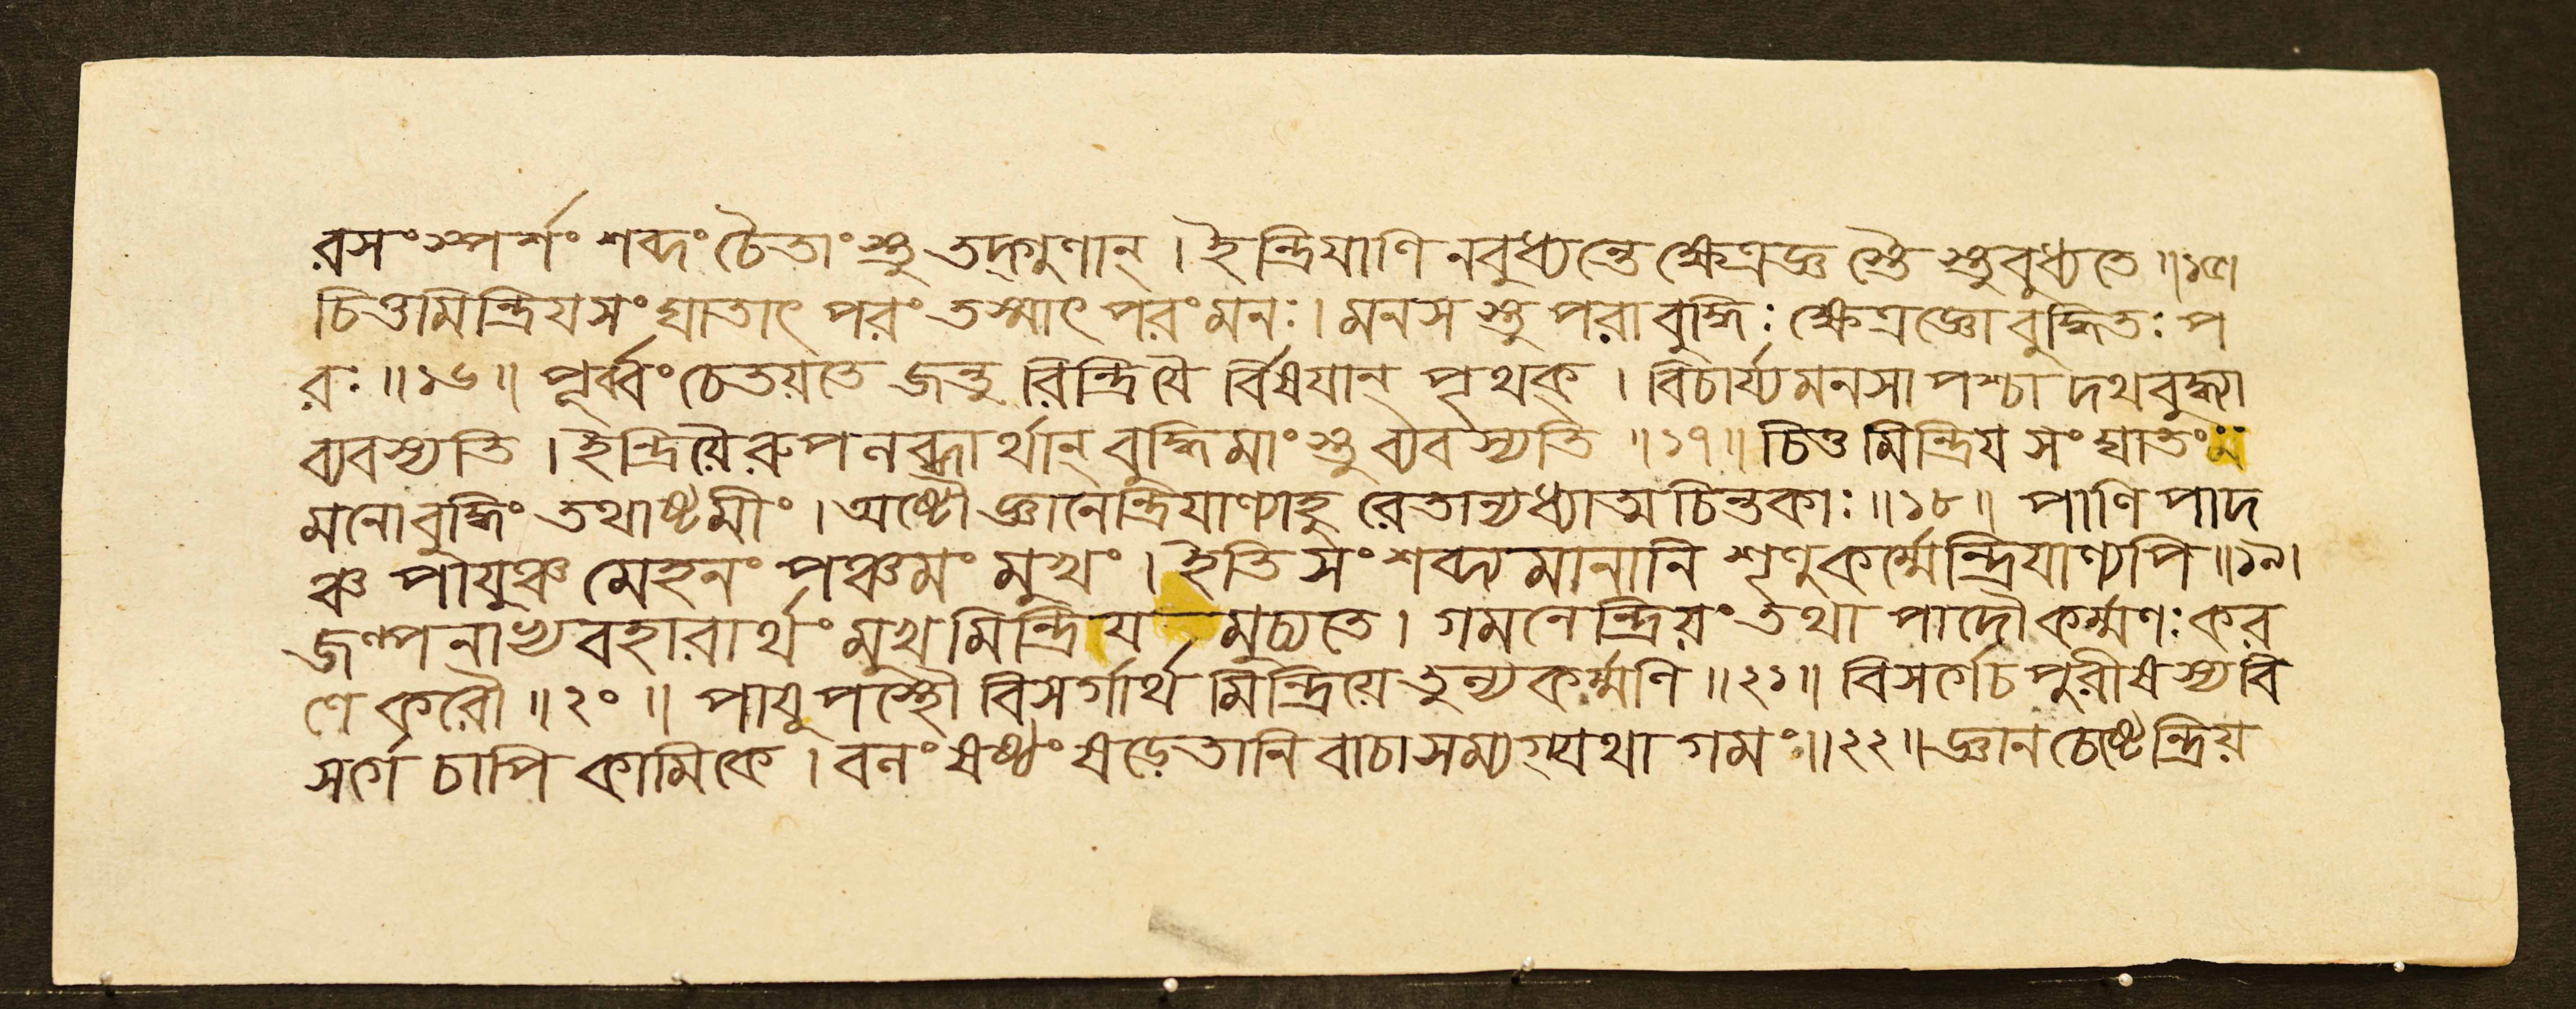 রসংস্পর্শং শব্দং চৈতাংস্তু তদ্গুণান্ । ইন্দ্রিয়াণি নবুধ্যন্তে ক্ষেত্রজ্ঞ স্তৈ স্তুবুধ্যতে ॥১৫॥
চিত্তমিন্দ্রিয়সংঘাতাৎ পরং তস্মাৎ পরংমনঃ । মনস স্তু পরাবুদ্ধিঃ ক্ষেত্রজ্ঞো বুদ্ধিতঃ প
রঃ ॥১৬॥ পূর্ব্বং চেতয়তে জন্তু রিন্দ্রিয়ৈ র্বিষয়ান্ পৃথক্ । বিচার্য্যমনসা পশ্চা দথবুদ্ধ্যা
ব্যবস্যতি । ইন্দ্রিয়ৈরুপলব্ধার্থান্ বুদ্ধিমাংস্তু ব্যবস্যতি ॥১৭॥ চিত্ত মিন্দ্রিয় সংঘাতং
মনোবুদ্ধিং তথাষ্টমীং । অষ্টৌ জ্ঞানেন্দ্রিয়াণ্যাহু রেতান্যধ্যাত্ম চিন্তকাঃ ॥১৮॥ পাণি পাদ
ঞ্চ পায়ুঞ্চ মেহনং পঞ্চমং মুখং । ইতি সংশব্দ্যমানানি শৃণুকর্ম্মেন্দ্রিয়াণ্যপি ॥১৯।
জল্পনাভ্যবহারার্থং মুখমিন্দ্রিয় মুচ্যতে । গমনেন্দ্রিয়ং তথা পাদৌ কর্ম্মণঃ কর
ণে করৌ ॥২০॥ পায়ূপস্থৌ বিসর্গার্থ মিন্দ্রিয়ে তুল্যকর্ম্মণি ॥২১॥ বিসর্গেচ পুরীষস্য বি
সর্গে চাপি কামিকে । বলং ষষ্ঠং ষড়েতানি বাচা সম্যগ্যথা গমং ॥২২॥ জ্ঞান চেষ্টেন্দ্রিয়